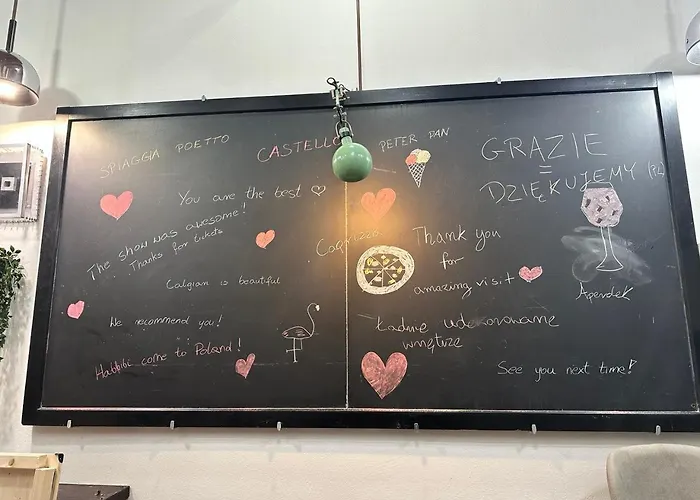 SPIAGGIA POETTO
CASTELLO
PETER PAN
You are the best
The show was awesome!
Thanks for tickets
Caligian is beautiful
We recommend you!
Habbibi come to Poland!
GRAZIE
=
DZIĘKUJEMY (PL)
Coqrizza
Thank you
for
amazing visit
Aperolek
Ładnie udekorowane
wnętrze
See you next time!